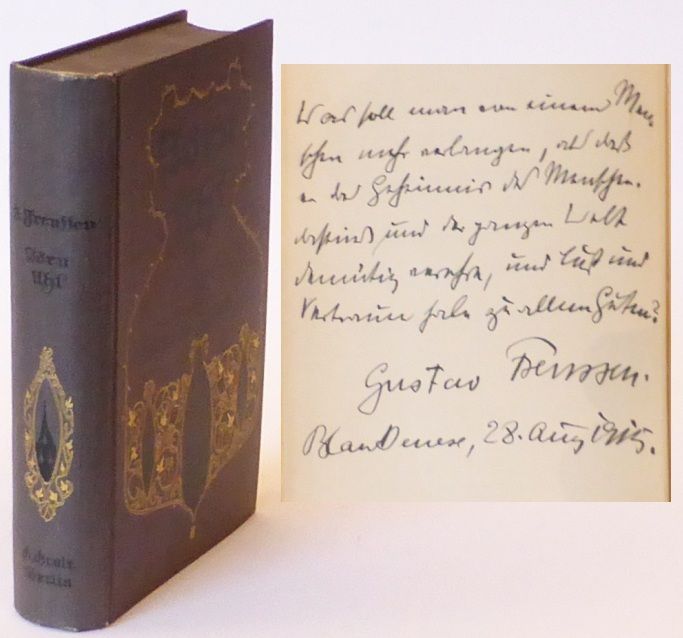 G. Frenssen
Jörn
Uhl
G. Grote
Berlin
Was soll man von einem Men-
schen mehr verlangen, als daß
er das Geheimnis des Menschen-
daseins und der ganzen Welt
demütig verehre, und Lust und
Vertrauen habe zu allem Guten?
Gustav Frenssen.
Blankenese, 28. Aug 1915.